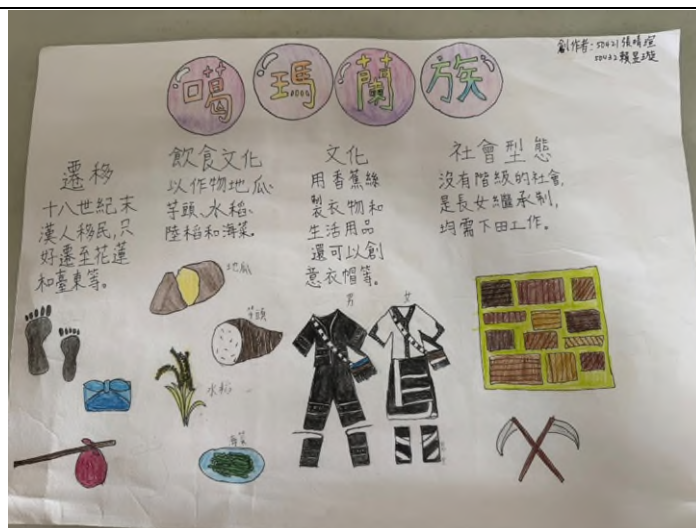 創作者:50421張晴瑄
50432賴昱璇
噶瑪蘭族
遷移
十八世紀末
漢人移民,只
好遷至花蓮
和臺東等。
飲食文化
以作物地瓜
芋頭、水稻、
陸稻和海菜。
文化
用香蕉絲
製衣物和
生活用品
還可以創
意衣帽等。
社會型態
沒有階級的社會,
是長女繼承制,
均需下田工作。
地瓜
芋頭
水稻
海菜
男
女